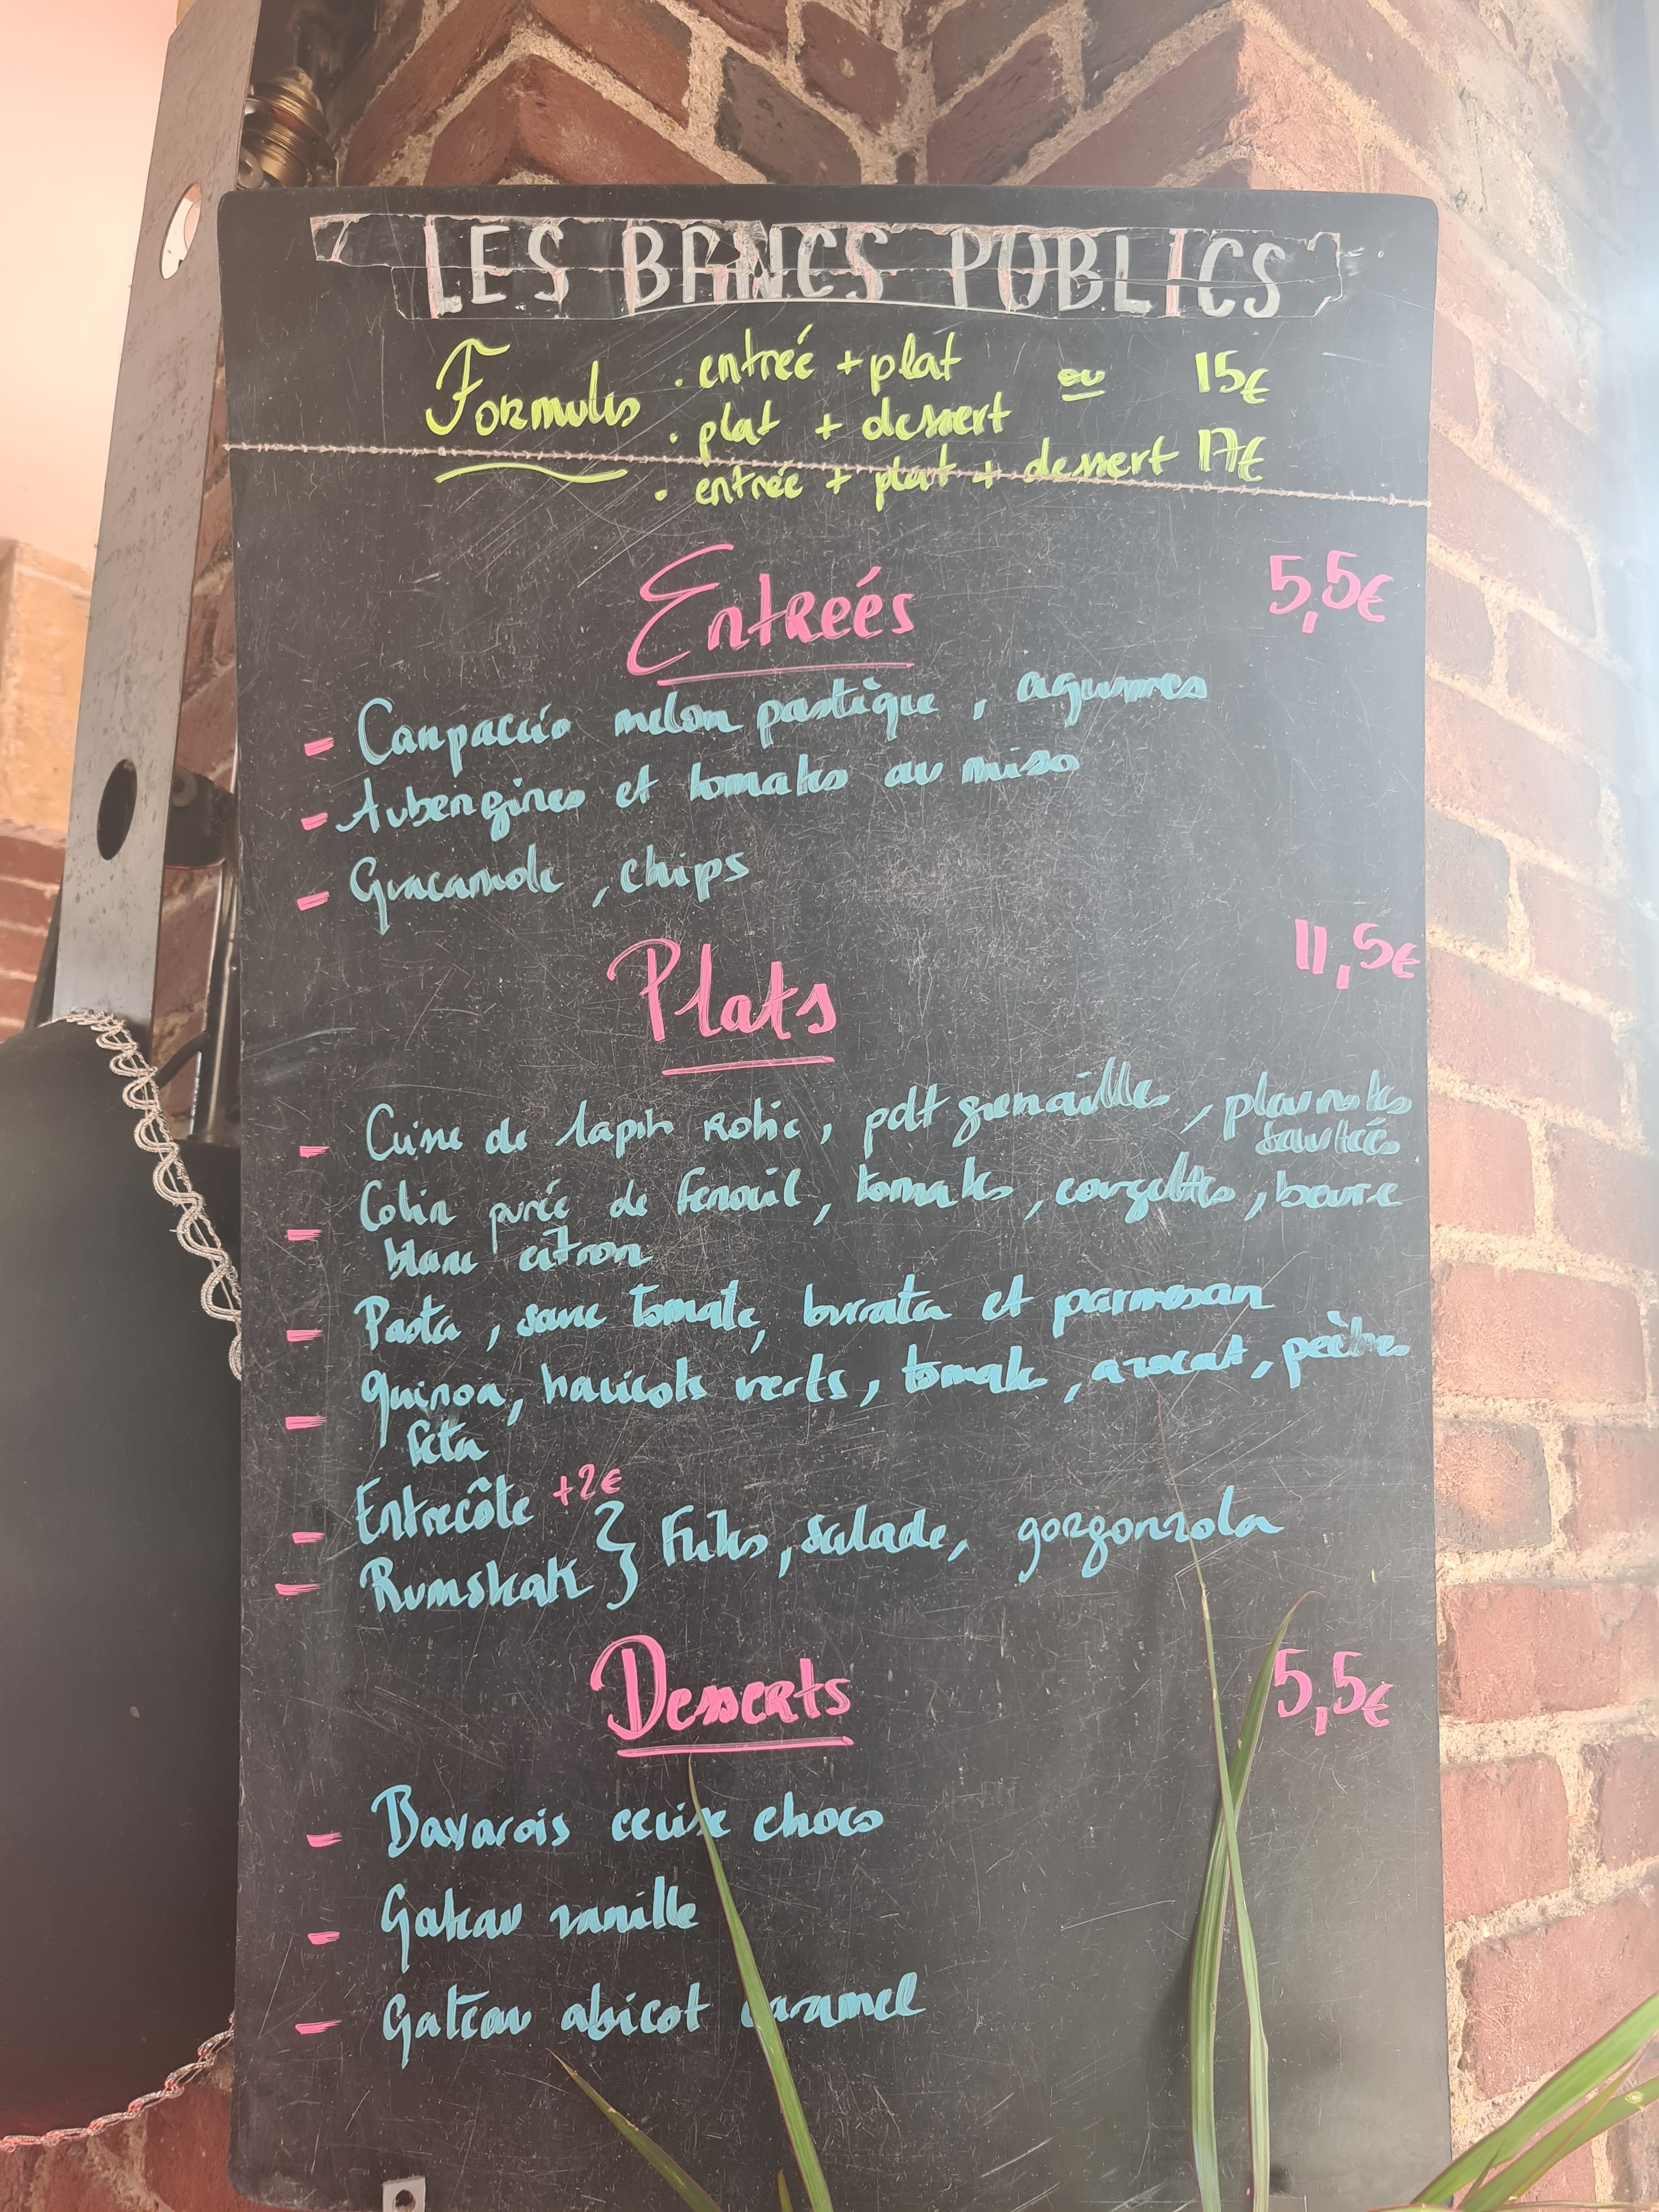 LES BANCS PUBLICS
Formules . entrée + plat ou 15€
. plat + dessert
. entrée + plat + dessert 17€
Entrées 5,5€
- Carpaccio melon pastèque, agrumes
- Aubergines et tomates au miso
- Guacamole, chips
Plats 11,5€
- Cuisse de lapin rotie, pdt grenailles, pleurotes
sautées
- Colin purée de fenouil, tomates, courgettes, beurre
blanc citron
- Pasta, sauce tomate, burrata et parmesan
- quinoa, haricots verts, tomate, avocat, pêches
feta
- Entrecôte +2€
- Rumsteak } Frites, salade, gorgonzola
Desserts 5,5€
- Bavarois cerise choco
- Gateau vanille
- Gateau abicot caramel